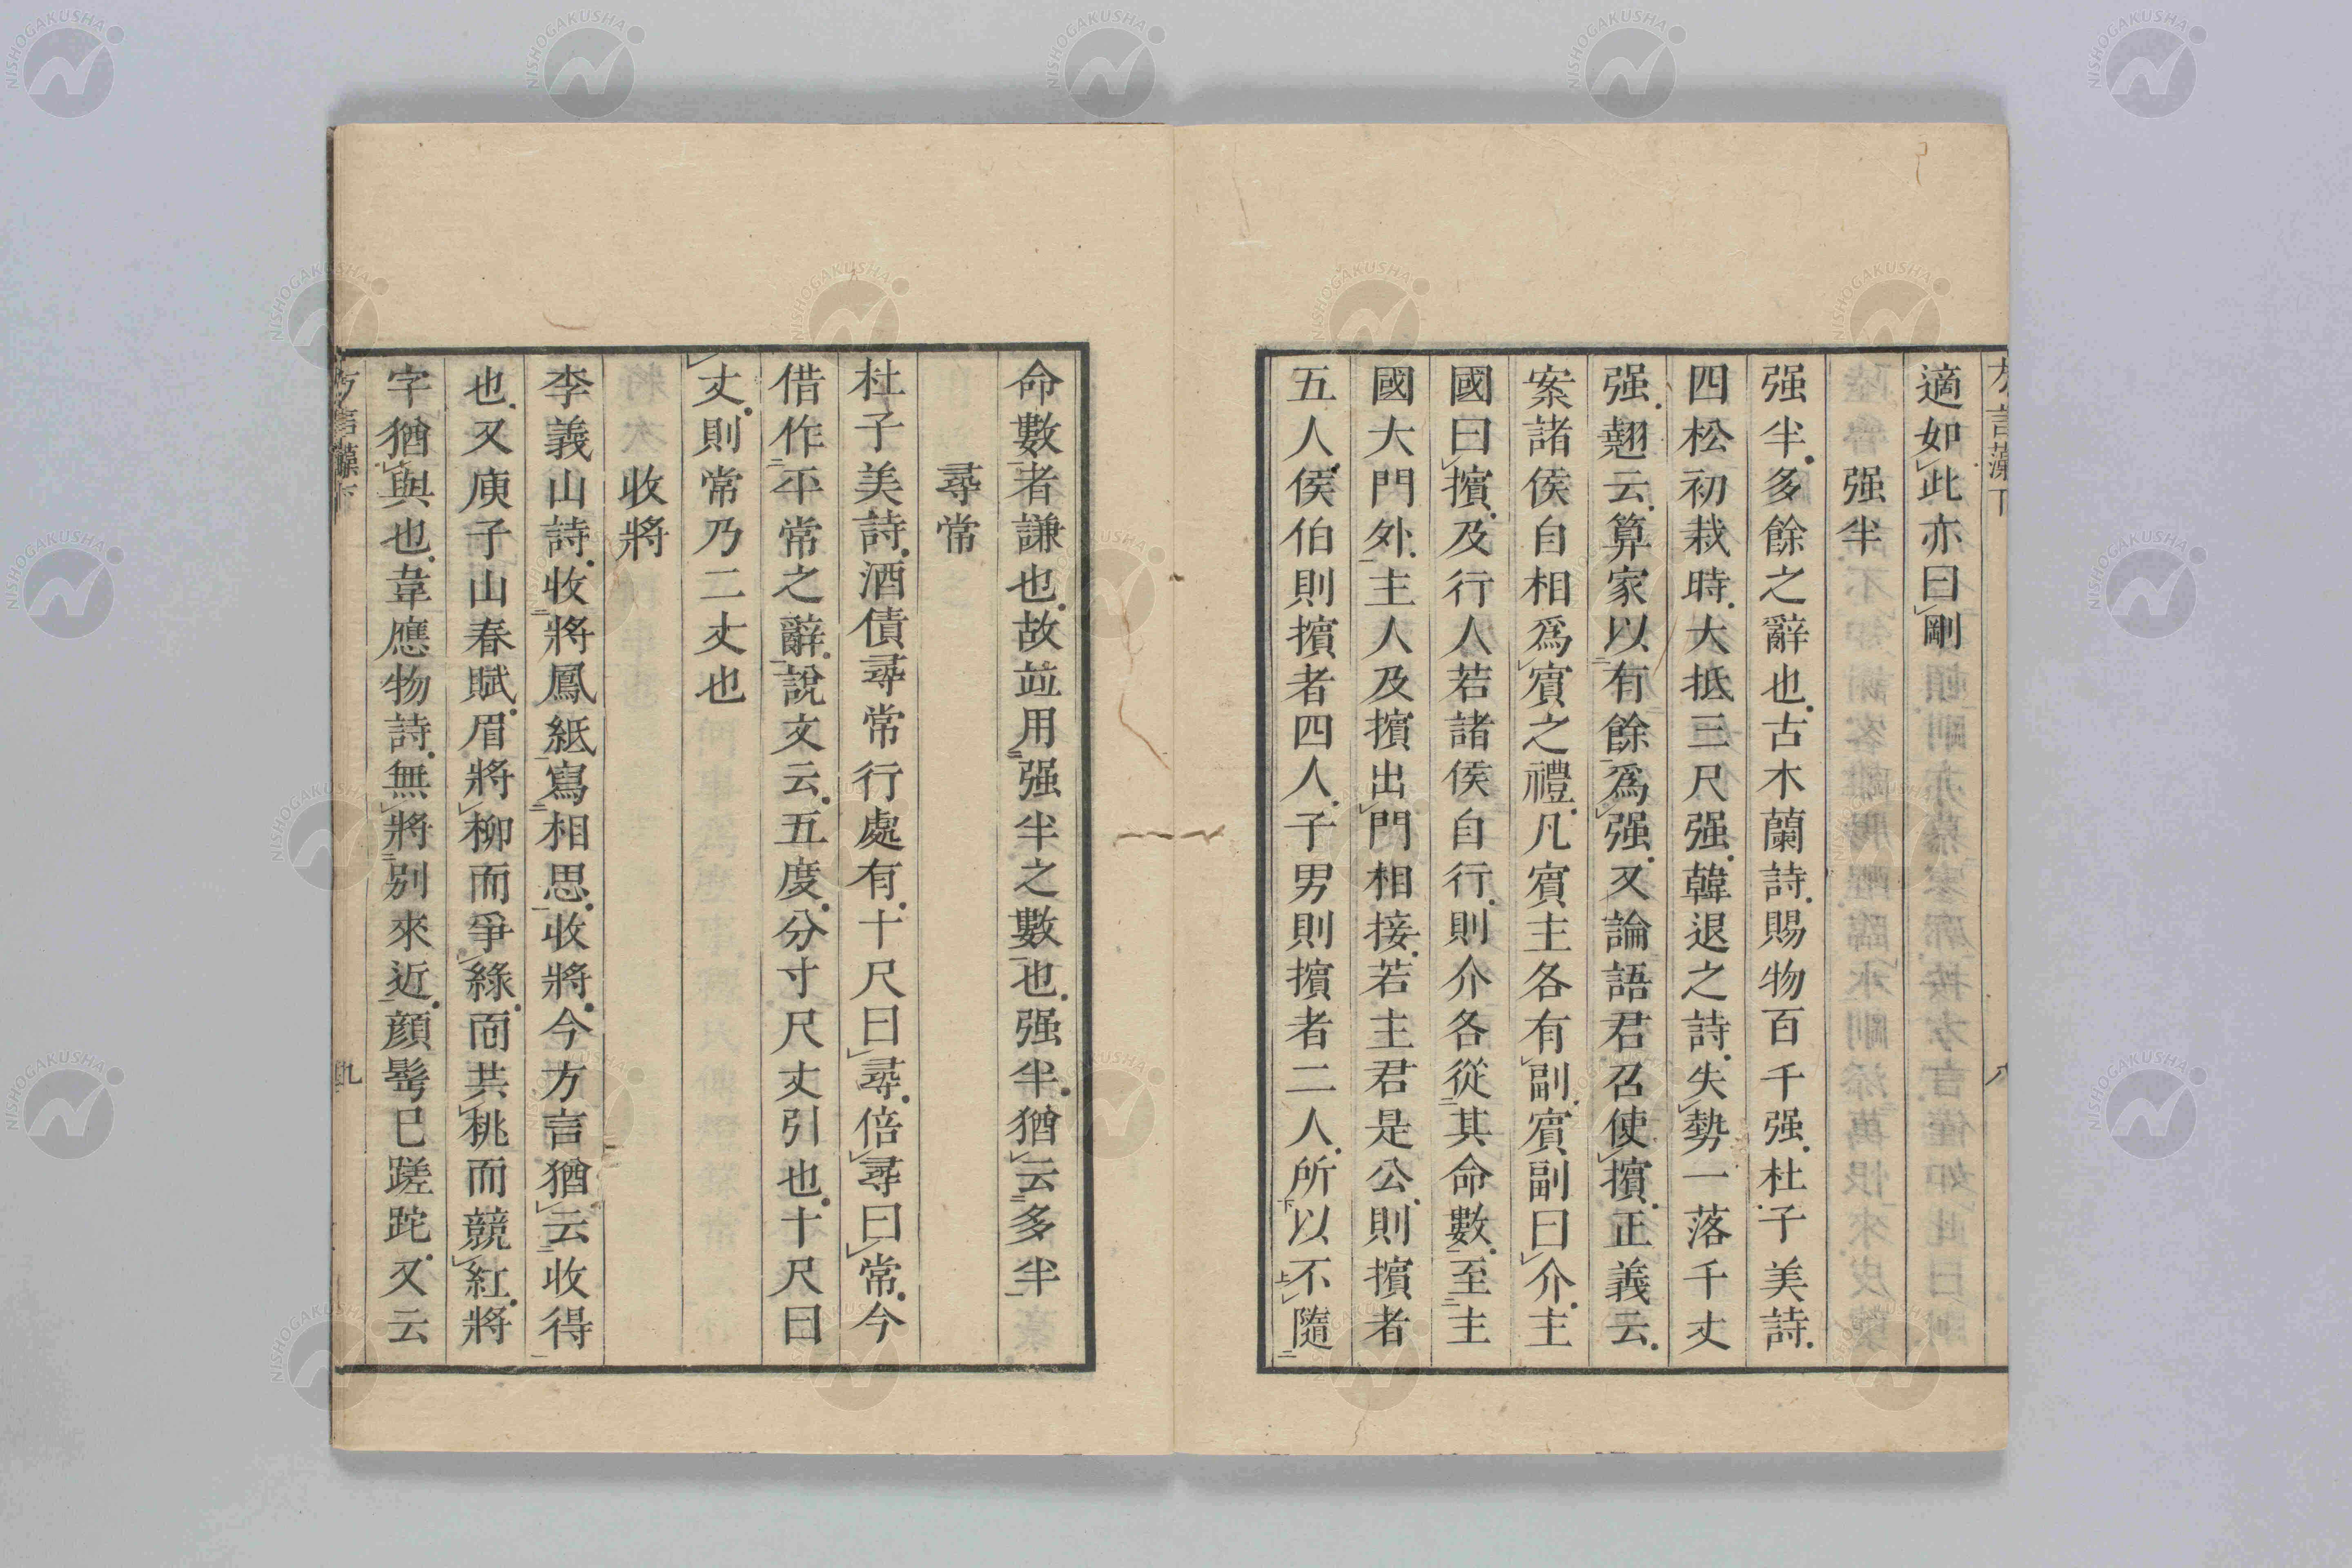 方言藻下
八
適如此亦曰剛
强半
强半多餘之辭也古木蘭詩賜物百千强杜子美詩
四松初栽時大抵三尺强韓退之詩失勢一落千丈
强翹云算家以有餘爲强又論語君召使擯正義云
案諸侯自相爲賓之禮凡賓主各有副賓副曰介主
國曰擯及行人若諸侯自行則介各從其命數至主
國大門外主人及擯出門相接若主君是公則擯者
五人侯伯則擯者四人子男則擯者二人所以不隨
命數者謙也故並用强半之數也强半猶云多半
尋常
杜子美詩酒債尋常行處有十尺曰尋倍尋曰常今
借作平常之辭說文云五度分寸尺丈引也十尺曰
丈則常乃二丈也
收將
李義山詩收將鳳紙寫相思收將今方言猶云收得
也又庾子山春賦眉將柳而爭綠面共桃而競紅將
字猶與也韋應物詩無將別來近顔髩已蹉跎又云
方言藻下
九
NISHOGAKUSHA